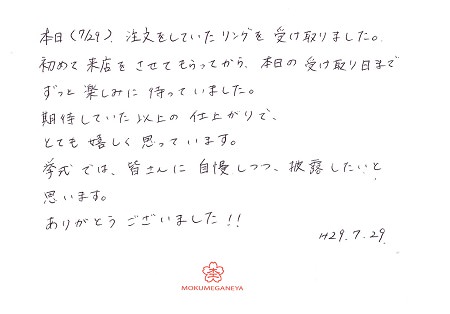 本日(7/29)、注文をしていたリングを受け取りました。
初めて来店をさせてもらってから、本日の受け取り日まで
ずっと楽しみに待っていました。
期待していた以上の仕上がりで、
とても嬉しく思っています。
挙式では、皆さんに自慢しつつ、披露したいと
思います。
ありがとうございました!!
H29.7.29.
杢
MOKUMEGANEYA